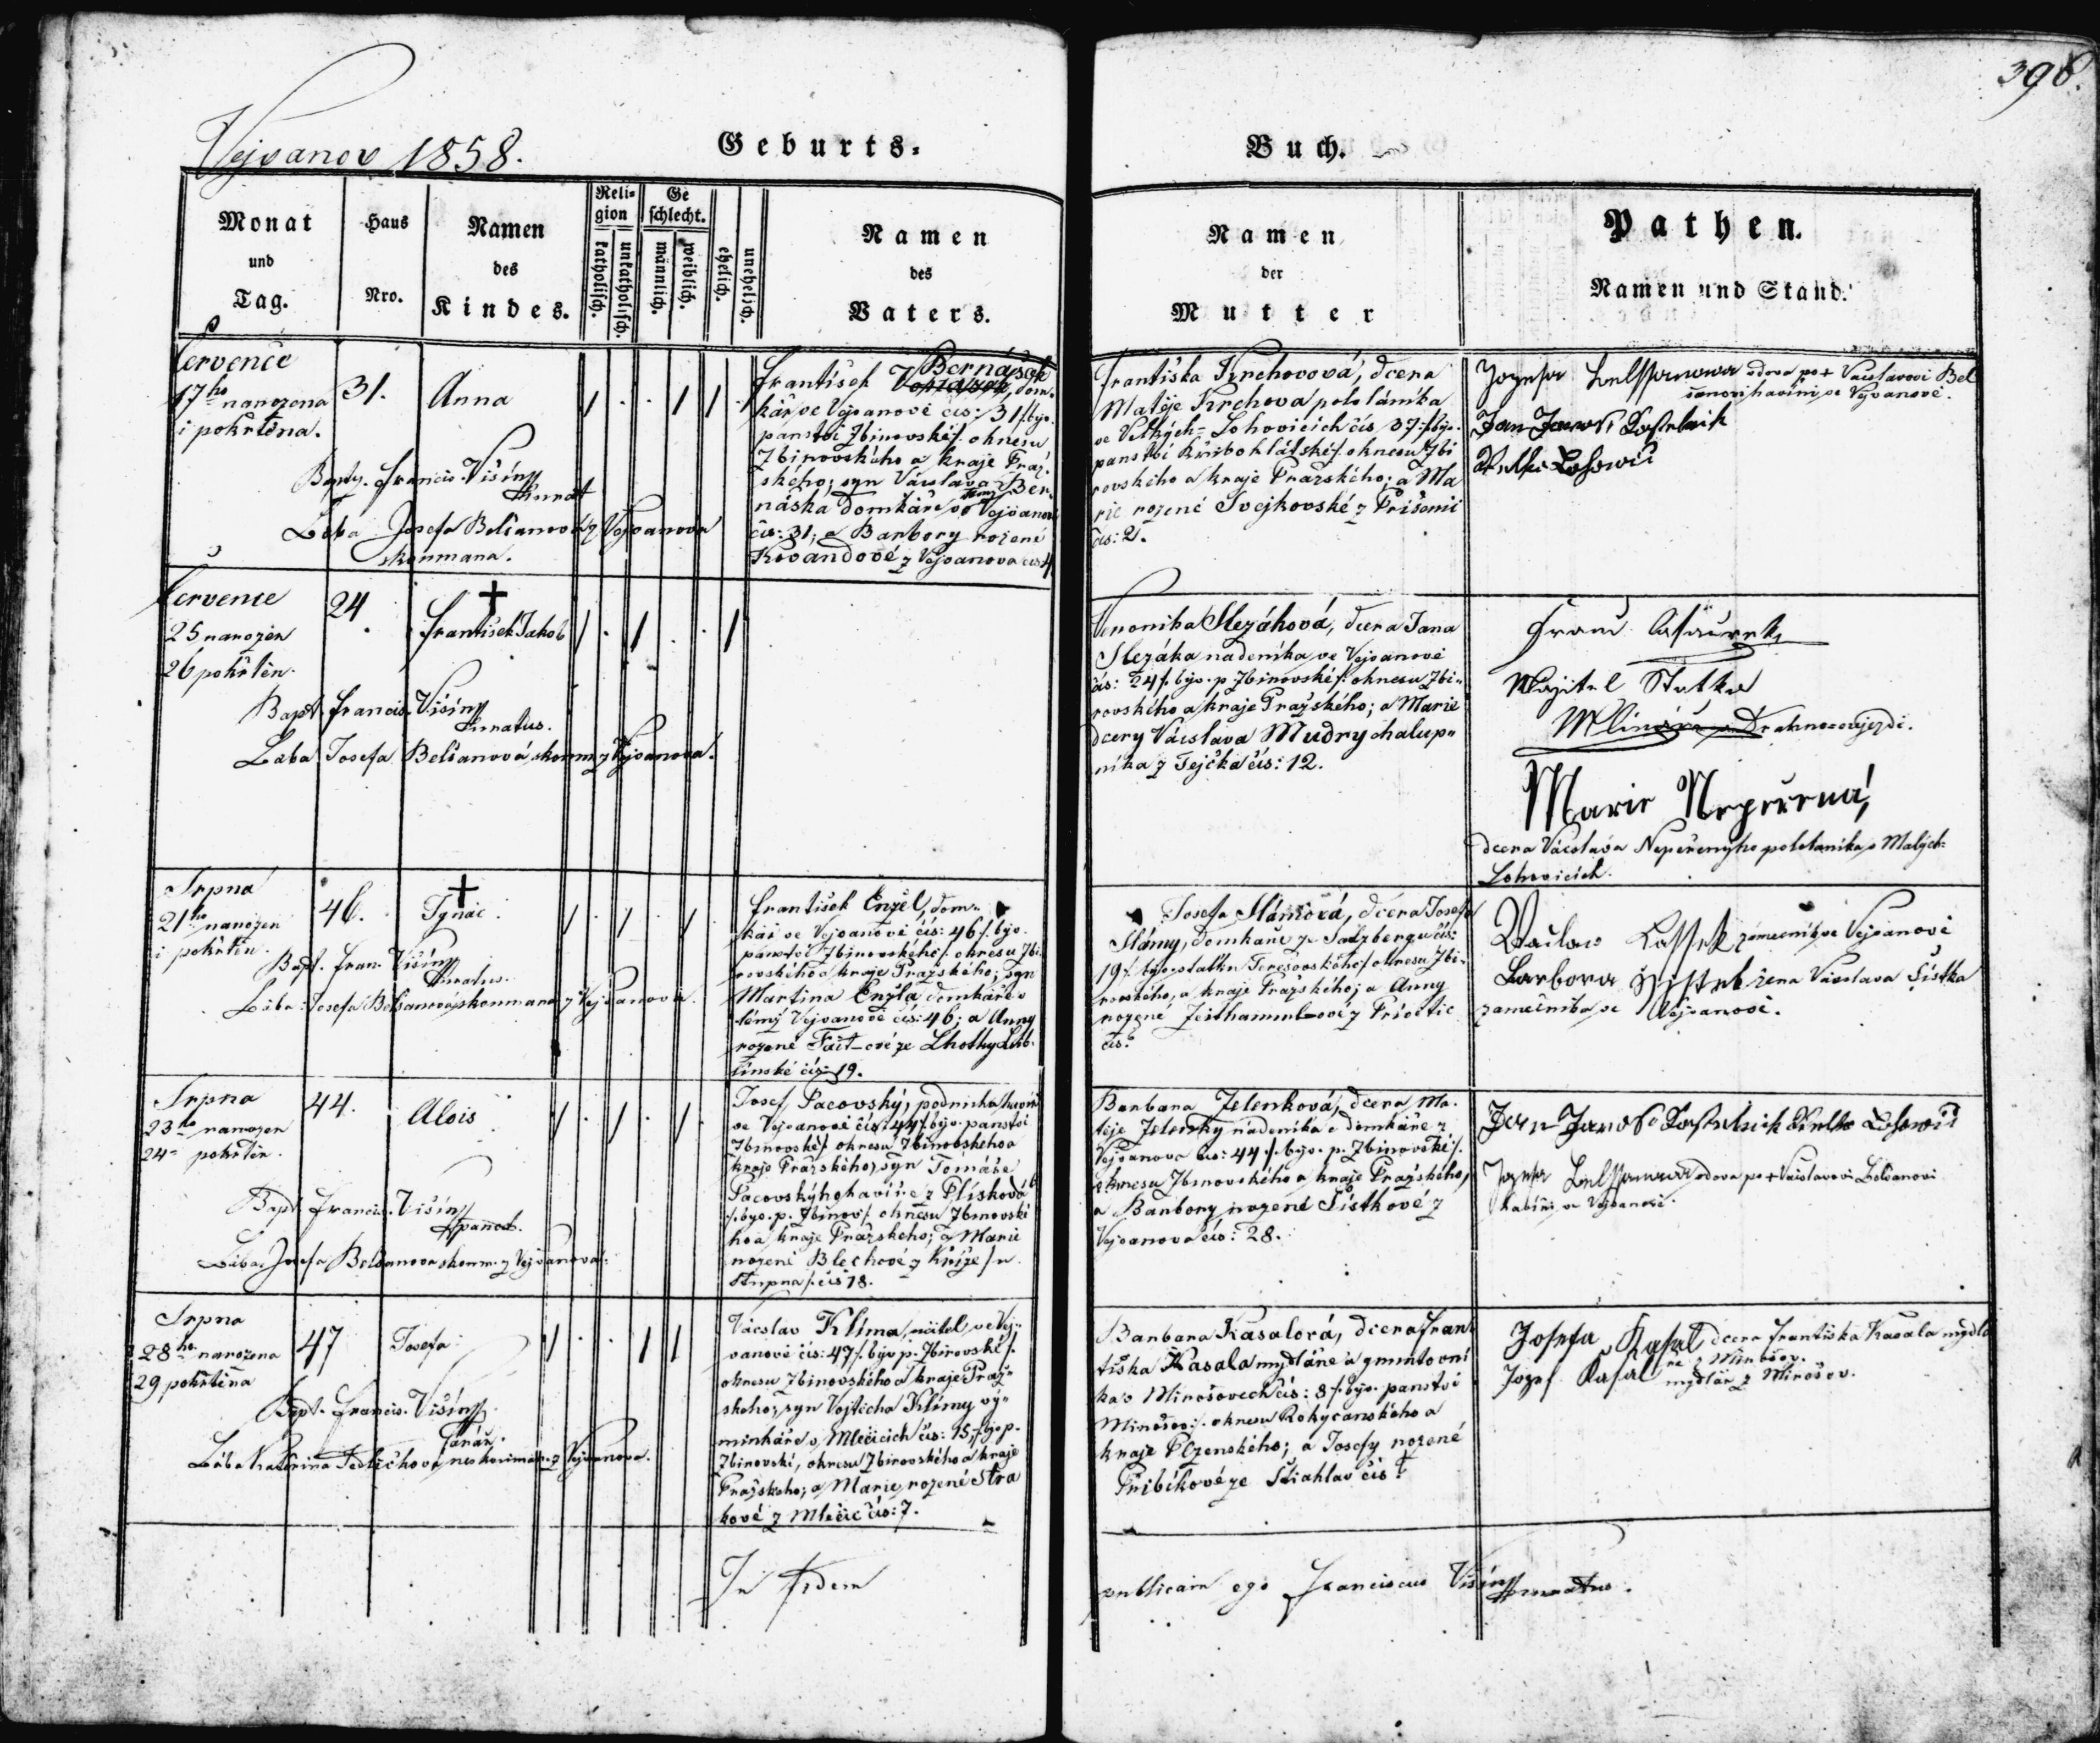 398.
Vejvanov 1858.
Geburts-
Buch.
Monat
und
Tag.
Haus
Nro.
Namen
des
Kindes.
Reli-
gion
katholisch.
unkatholisch.
Ge
schlecht.
männlich.
weiblich.
ehelich.
unehelich.
Namen
des
Vaters.
Namen
der
Mutter
Pathen.
Namen und Stand.
Července
17ho narozena
i pokřtěna.
31.
Anna
Bapty. Francis. Višíny
Curat
Bába Josefa Belšanová z Vejvanova
zkoumana.
Bernášek
František dom-
kář ve Vejvanově čís: 31 /: býv.
panství Zbirovské :/ okresu
Zbirovského a kraje Praž-
ského; syn Václava Ber-
náska domkáře ve Vejvanově
čís: 31, a Barbory rozené
Kovandové z Vejvanova čís 4
Františka Krchovová, dcera
Matěje Krchova pololáníka
ve Velkých- Lohovicích čís 37 /: býv.
panství Křivoklátské :/ okresu Zbi
rovského a kraje Pražského; a Ma
rie rozené Svejkovské z Příšemi
čís: 2.
Jozefa vdova po + Václavovi Bel
šanovi havíři ve Vejvanově.
Jan
Velke Lohowic
Července
25 narozen
26 pokřtěn.
24.
†
František Jakob
Bapt. Francis. Višíny
Curatus.
Bába Josefa Belšanová zkoum z Vejvanova.
Veronika Slezáková, dcera Jana
Slezáka nadeníka ve Vejvanově
čís: 24 /: býv. p. Zbirovské :/ okresu Zbi-
rovského a kraje Pražského; a Marie
dcery Václava Mudry chalup-
níka z Tejčka čís: 12.
Franc
Majitel Statku
Marie Nepeřená,
dcera Václava Nepeřenýho pololaníka z Malých-
Lohovicích.
Srpna
21ho narozen
i pokřtěn.
46.
†
Ignác.
Bapt. Fran. Višíny
Curatus.
Bába: Josefa Belšanová zkoumana z Vejvanova.
František Enzel, dom-
kář ve Vejvanově čís: 46 /: býv.
panství Zbirovského :/ okresu Zbi
rovského a kraje Pražského; syn
Martina Enzla, domkáře
Vejvanově čís: 46; a Anny
rozené ze Lhotky Lib-
línské čís: 19.
Josefa Slámová, dcera Josefa
Slámy, domkáře ze Salzbergu čís:
19 /: býv. statku Terešovského :/ okresu Zbi-
rovského, a kraje Pražského; a Anny
rozené z Prívětic
čís:
Waclaw zámečník ve Vejvanově
Barbora žena Václava Šístka
zámečníka ve Vejvanově.
Srpna
23ho narozen
24. pokřtěn.
44.
Alois
Bapt. Francis. Višíny
Bába: Josefa Belšanova zkoum. z Vejvanova.
Josef Pacovský, podruh a havíř
ve Vejvanově čís: 44 /: býv. panství
Zbirovské :/ okresu Zbirovského a
kraje Pražského, syn Tomáše
Pacovskýho havíře z Plískova
/: býv. p. Zbirov :/ okresu Zbirovské
ho a kraje Pražského; a Marie
rozené Blechové z Kříže /: u
Stupna :/ čís 18.
Barbara Jelenková, dcera Ma-
těje Jelenky nadeníka a domkáře z
Vejvanova čís: 44 /: býv. p. Zbirovské :/
okresu Zbirovského a kraje Pražského,
a Barbory rozené Šístkové z
Vejvanova čís: 28.
Jan Welke Lohowic
Jozefa vdova po + Václavovi Belšanovi
havíři ve Vejvanově.
Srpna
28ho narozena
29 pokřtěna
47
Josefa
Bapt. Francis. Višíny
Farář.
Bába Kateřina Jedličkova neskoumana z Vejvanova.
Václav Klíma, učitel, ve Vej-
vanově čís: 47 /: býv. p. Zbirovské :/
okresu Zbirovského a kraje Praž-
ského, syn Vojtěcha Klímy vý-
minkáře v Mlečicích čís: 15, /: býv p.
Zbirovské, okresu Zbirovského a kraje
Pražskeho; a Marie rozené Stra
kové z Mlečic čís: 7.
Barbara Kasalová, dcera Fran
tiška Kasala mydláře a gruntovní
ka v Mirošovech čís: 8 /: býv. panství
Mirošov :/ okresu Rokycanského a
kraje Plzenského; a Josefy rozené
Pribíkové ze Štiahlav čís:
Josefa Kasal dcera Františka Kasala mydlá
ře z Mirošov.
Jozef Kasal mydlář z Mirošov.
In fidem
publicam ego Franciscus Višíny